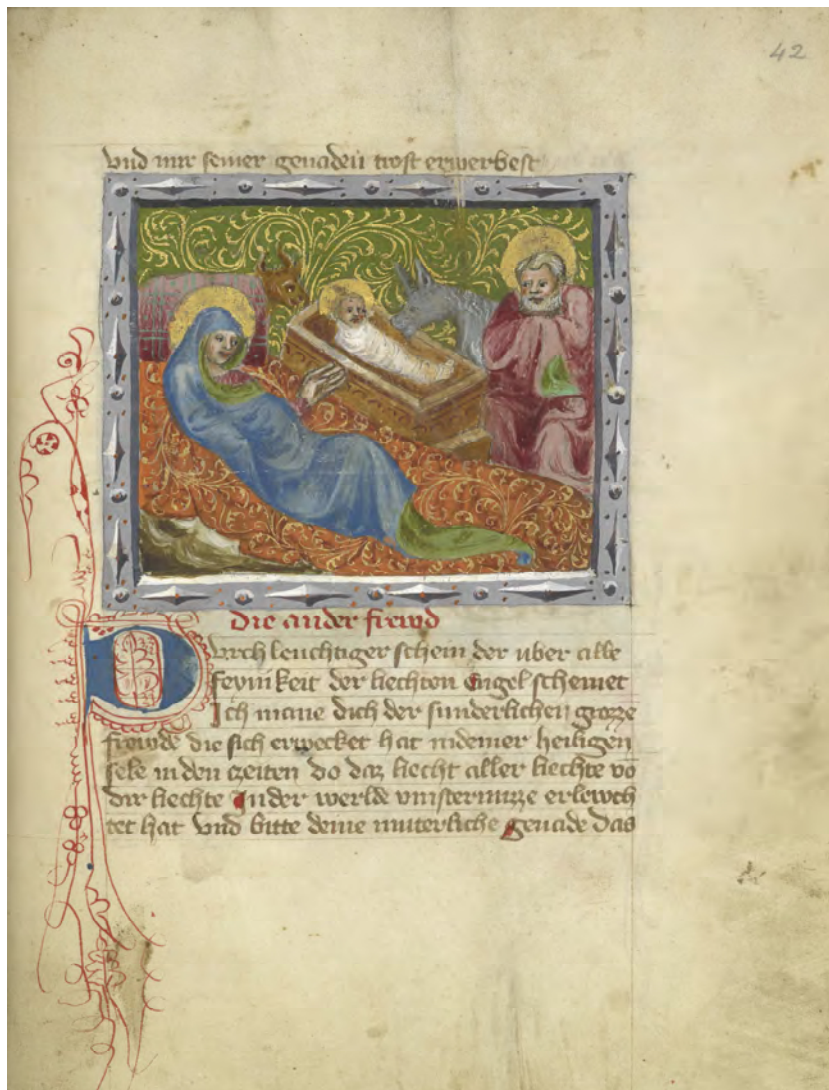 42
vnd mir seiner genaden trost erwerbest
die ander frewd
Durch leuchtiger schein der vber alle
feyni keit der liechten engel scheinet
Ich mane dich der sunderlichen grozze
frewde die sich erwecket hat in deiner heiligen
sele in den czeiten do daz liecht aller liechte vo
dir liechte In der werlde vinsternuzze erlewch
tet hat vnd bitte deine muterliche genade das